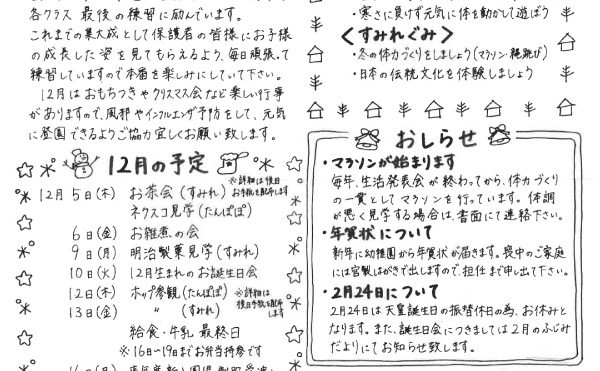 各クラス 最後の練習に励んでいます。
これまでの集大成として保護者の皆様にお子様
の成長した姿を見てもらえるよう、毎日頑張って
練習していますので本番を楽しみにしていて下さい。
12月はおもちつきやクリスマス会など楽しい行事
がありますので、風邪やインフルエンザ予防をして、元気
に登園できるようご協力宜しくお願い致します。
12月の予定
12月 5日(木) お茶会(すみれ) ※詳細は後日
お手紙を配布します
ネクスコ見学(たんぽぽ)
6日(金) お雑煮の会
9日(月) 明治製菓見学(すみれ)
10日(火) 12月生まれのお誕生日会
12日(木) ホップ参観(たんぽぽ) ※詳細は
後日手紙を配布
します
13日(金) 〃 (すみれ)
給食・牛乳 最終日
※16日〜19日までお弁当持参です
・寒さに負けず元気に体を動かして遊ぼう
<すみれぐみ>
・冬の体力づくりをしましょう(マラソン・縄跳び)
・日本の伝統文化を体験しましょう
おしらせ
・マラソンが始まります
毎年、生活発表会が終わってから、体力づくり
の一貫としてマラソンを行っています。体調
が悪く見学する場合は、書面にて連絡下さい。
・年賀状について
新年に幼稚園から年賀状が届きます。喪中のご家庭
には官製はがきで出しますので、担任まで申し出て下さい。
・2月24日について
2月24日は天皇誕生日の振替休日の為、お休みと
なります。また、誕生日会につきましては2月のふじみ
だよりにてお知らせ致します。